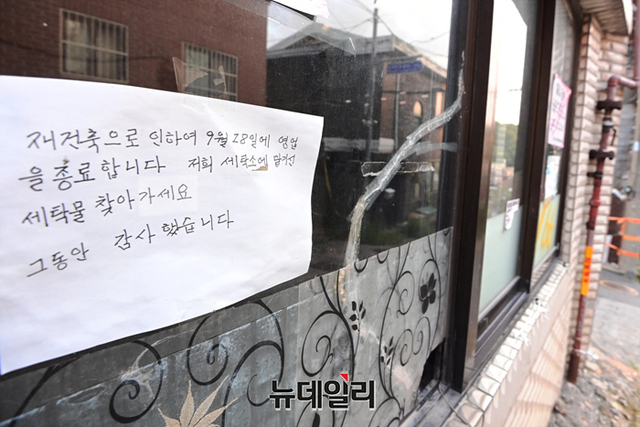 재건축으로 인하여 9월 28일에 영업
을 종료합니다 저희 세탁소에 맡기신
세탁물 찾아가세요
그동안 감사했습니다
뉴데일리